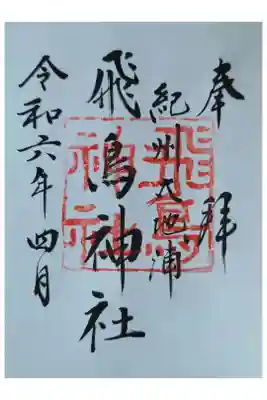 奉拝
紀州太地浦
飛鳥神社
令和六年四月
飛鳥神社